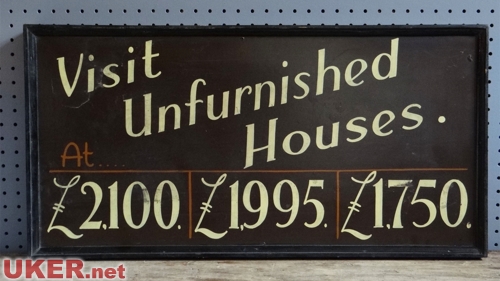 Visit
Unfurnished
Houses.
At....
£2,100. £1,995. £1,750.
UKER.net